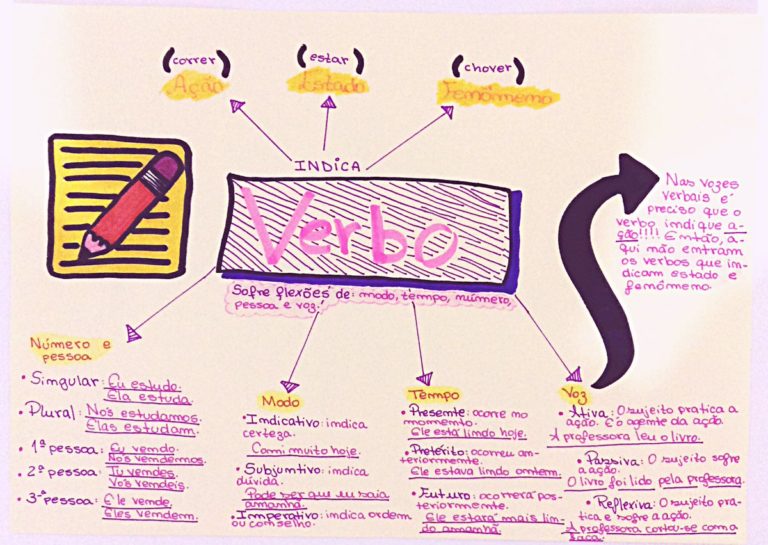 (correr)
Ação
(estar)
Estado
(chover)
Fenômeno
INDICA
Verbo
Sofre flexões de: modo, tempo, número,
pessoa e voz.
Nas vozes
verbais é
preciso que o
verbo indique a-
ção!!!! Então, a-
qui não entram
os verbos que in-
dicam estado e
fenômeno.
Número e
pessoa
• Singular: Eu estudo.
Ela estuda
• Plural: Nós estudamos.
Elas estudam.
• 1ª pessoa: Eu vendo.
Nós vendemos.
• 2ª pessoa: Tu vendes.
Vós vendeis.
• 3ª pessoa: Ele vende.
Eles vendem.
Modo
• Indicativo: indica
certeza.
Comi muito hoje.
• Subjuntivo: indica
dúvida.
Pode ser que eu saia
amanhã.
• Imperativo: indica ordem
ou conselho.
Tempo
• Presente: ocorre no
momento.
Ele está lindo hoje.
• Pretérito: ocorreu an-
teriormente.
Ele estava lindo ontem.
• Futuro: ocorrerá pos-
teriormente.
Ele estará mais lin-
do amanhã.
Voz
• Ativa: O sujeito pratica a
ação. É o agente da ação.
A professora leu o livro.
• Passiva: O sujeito sofre
a ação.
O livro foi lido pela professora.
• Reflexiva: O sujeito pra-
tica e sofre a ação.
A professora cortou-se com a
faca.